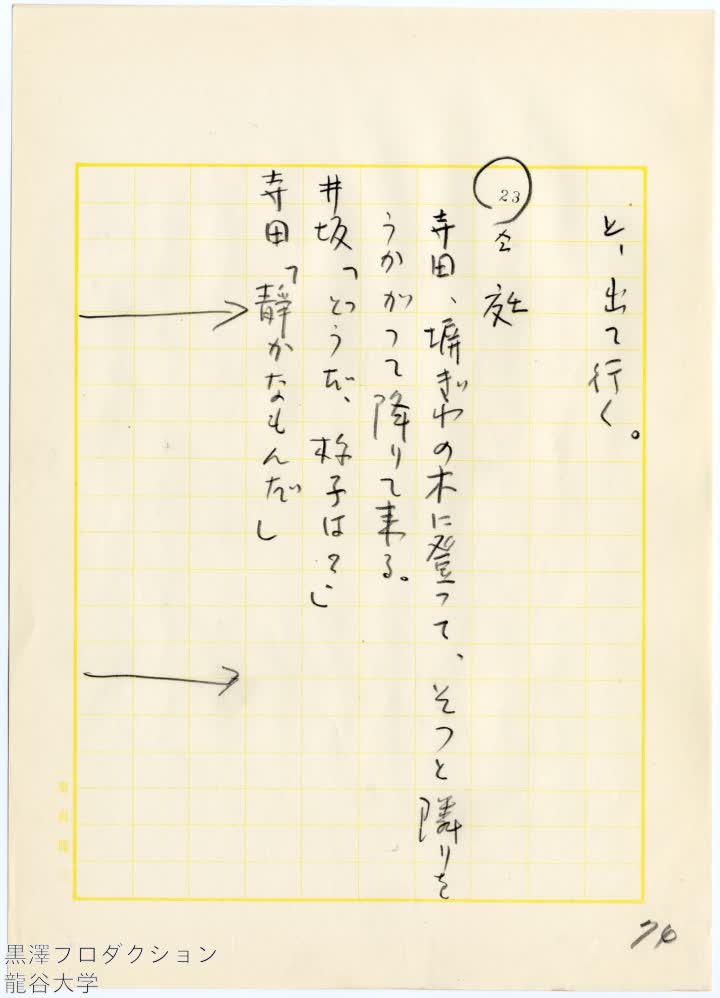 と、出て行く。
23 仝 庭
寺田、塀ぎわの木に登って、そっと隣りを
うかがって降りて来る。
井坂「どうだ、様子は？」
寺田「静かなもんだ」
76
黒澤プロダクション
龍谷大学